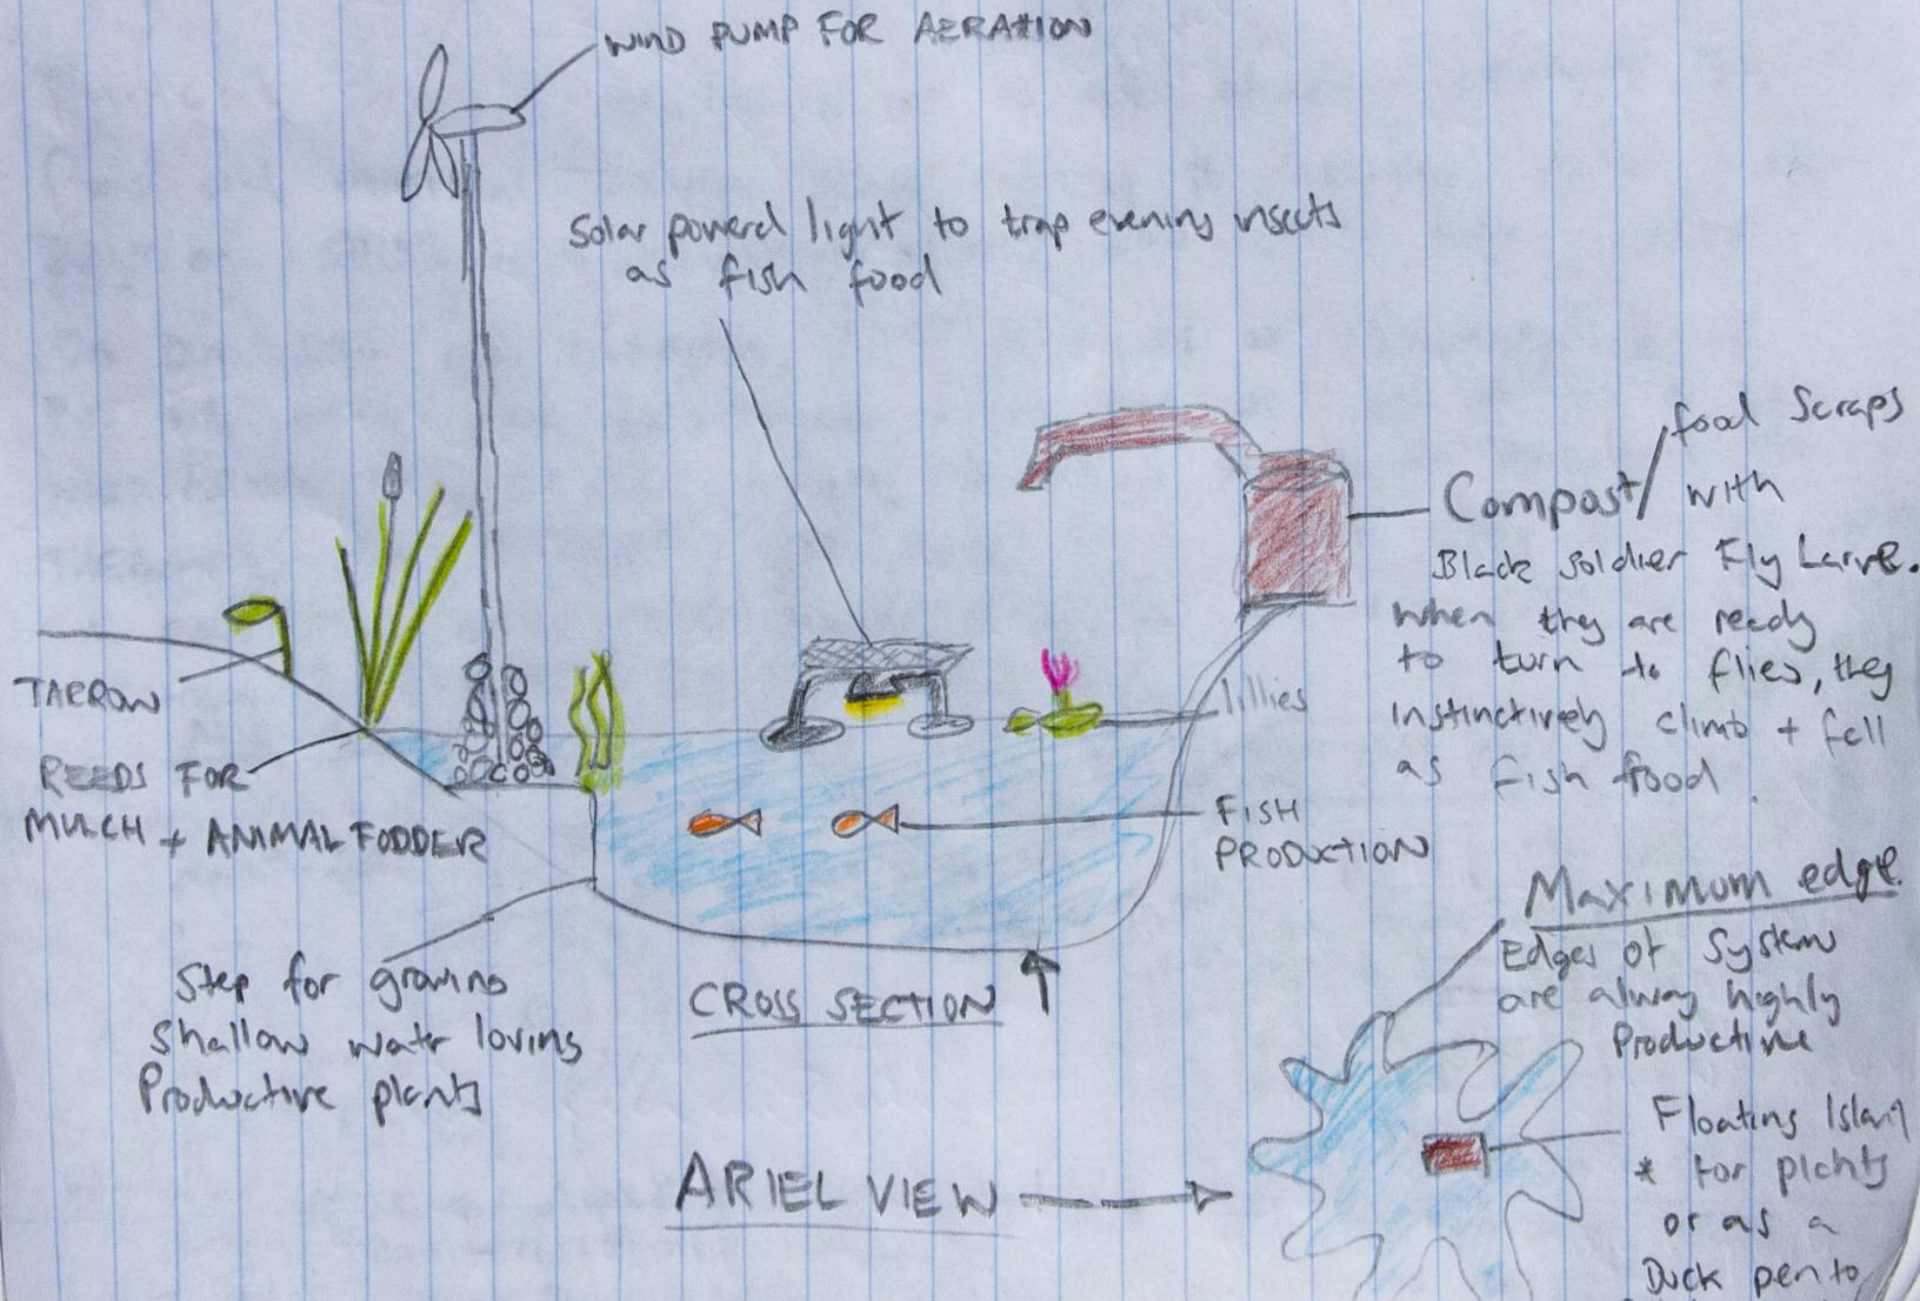 WIND PUMP FOR AERATION
Solar powerd light to trap evening insects
as fish food
food Scraps
Compost/ with
Black Soldier Fly Larve.
When they are ready
to turn to flies, they
instinctively climb + fall
as fish food.
TARROW
REEDS FOR
MULCH + ANIMAL FODDER
lillies
FISH
PRODUCTION
Step for growing
Shallow water loving
Productive plants
CROSS SECTION
MAXIMUM edge.
Edges of System
are alway highly
Productive
ARIEL VIEW
Floating Island
* for plants
or as a
Duck pen to